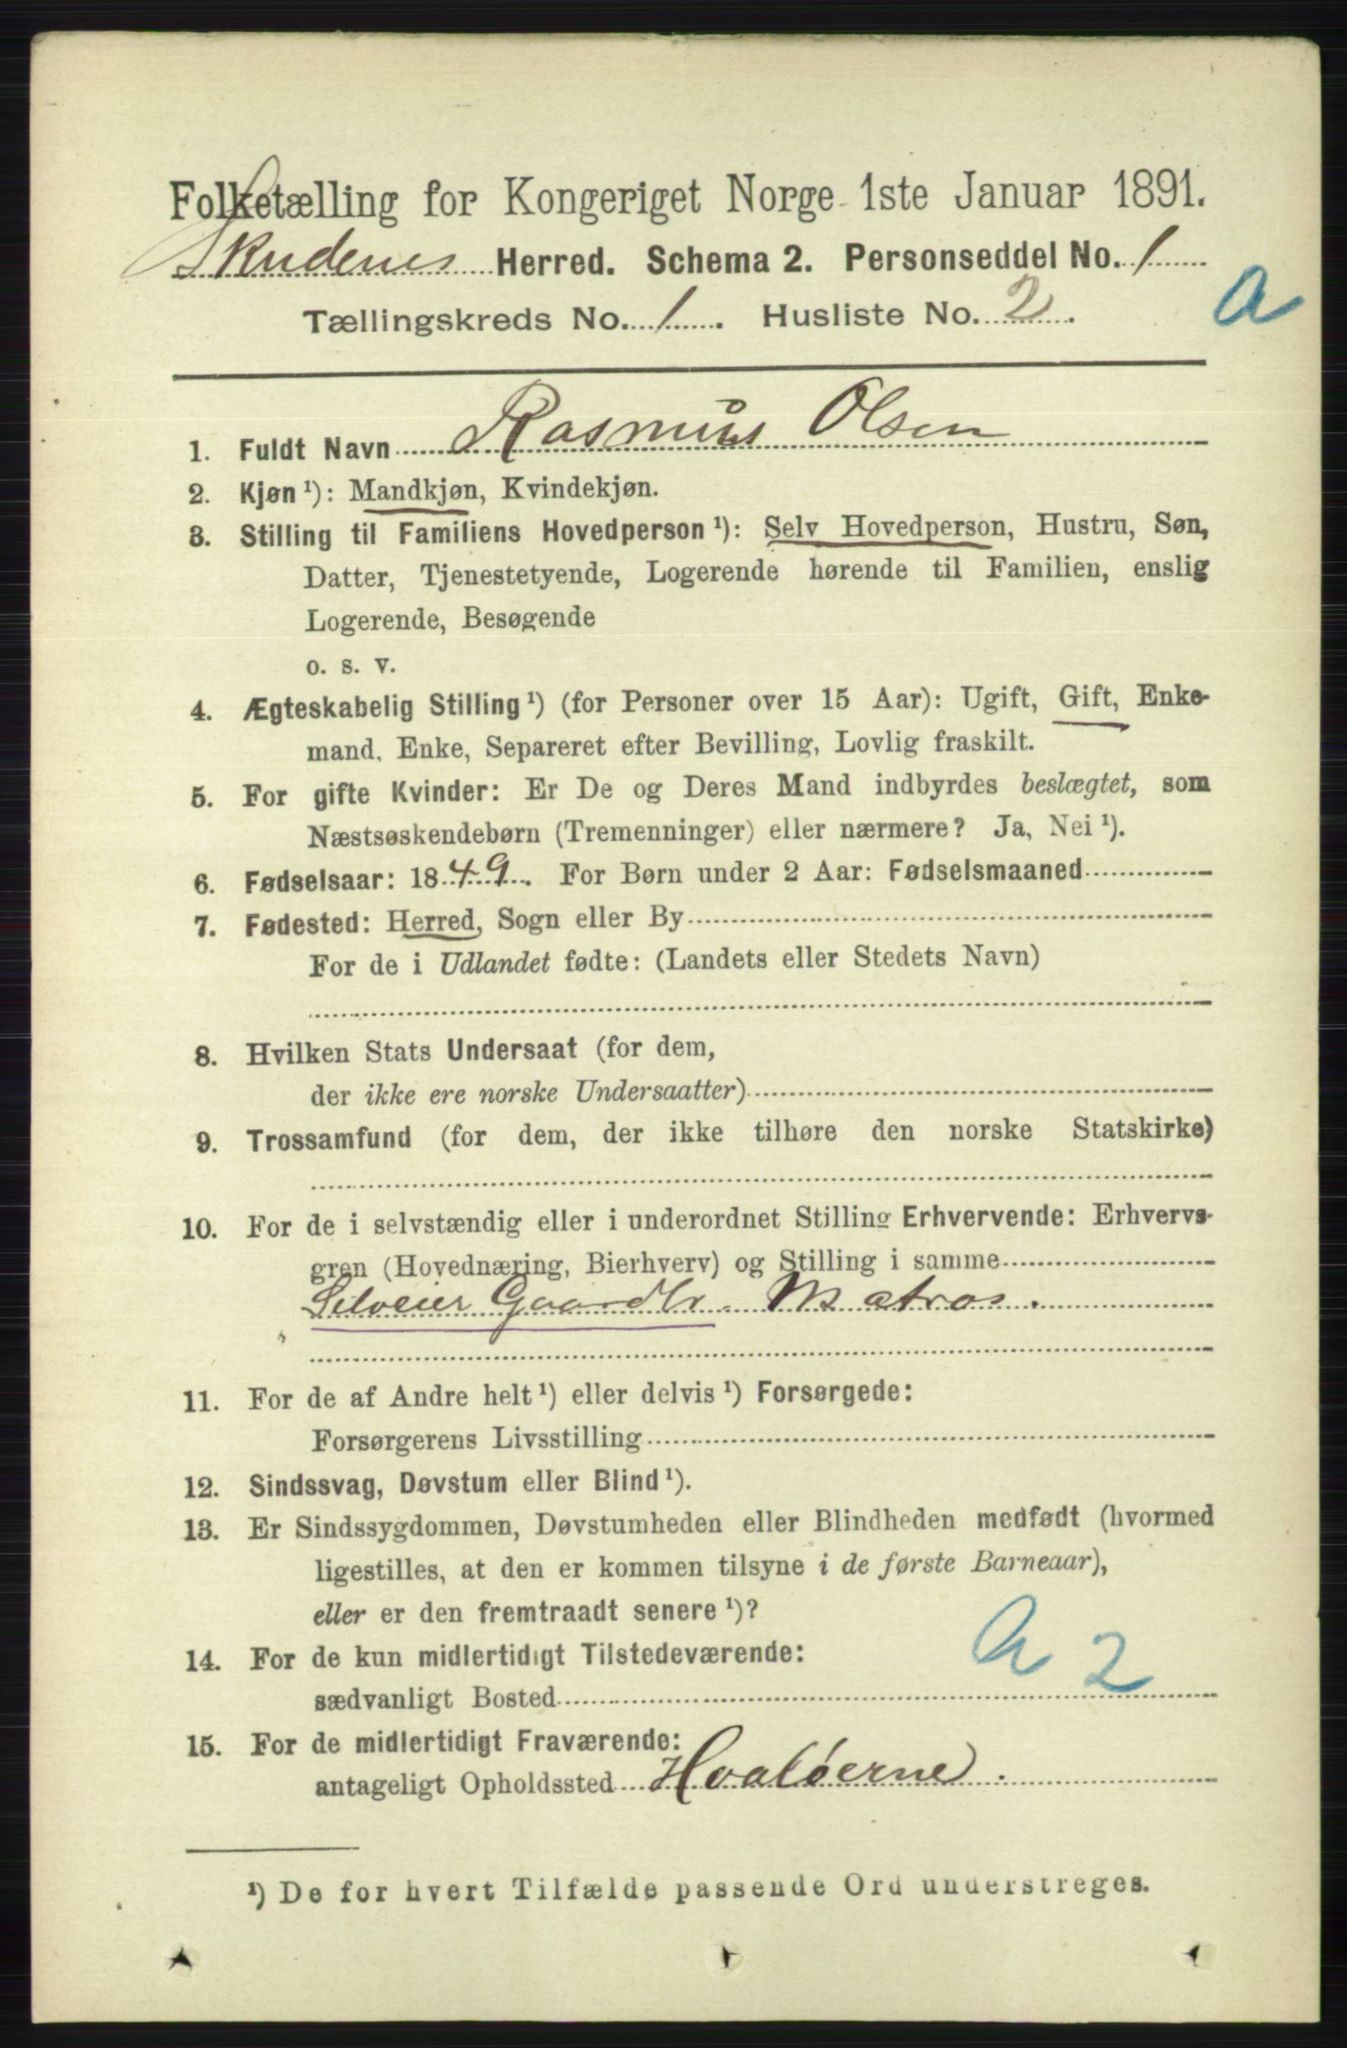 Folketælling for Kongeriget Norge 1ste Januar 1891.
Skudenes Herred. Schema 2. Personseddel No. 1
a
Tællingskreds No. 1. Husliste No. 2.
1. Fuldt Navn Rasmus Olsen
2. Kjøn ¹): Mandkjøn, Kvindekjøn.
3. Stilling til Familiens Hovedperson ¹): Selv Hovedperson, Hustru, Søn,
Datter, Tjenestetyende, Logerende hørende til Familien, enslig
Logerende, Besøgende
o. s. v.
4. Ægteskabelig Stilling ¹) (for Personer over 15 Aar): Ugift, Gift, Enke-
mand, Enke, Separeret efter Bevilling, Lovlig fraskilt.
5. For gifte Kvinder: Er De og Deres Mand indbyrdes beslægtet, som
Næstsøskendebørn (Tremenninger) eller nærmere? Ja, Nei ¹).
6. Fødselsaar: 1849. For Børn under 2 Aar: Fødselsmaaned
7. Fødested: Herred, Sogn eller By
For de i Udlandet fødte: (Landets eller Stedets Navn)
8. Hvilken Stats Undersaat (for dem,
der ikke ere norske Undersaatter)
9. Trossamfund (for dem, der ikke tilhøre den norske Statskirke)
10. For de i selvstændig eller i underordnet Stilling Erhvervende: Erhvervs-
gren (Hovednæring, Bierhverv) og Stilling i samme
Selveier Gaardbr. Matros.
11. For de af Andre helt ¹) eller delvis ¹) Forsørgede:
Forsørgerens Livsstilling
12. Sindssvag, Døvstum eller Blind ¹).
13. Er Sindssygdommen, Døvstumheden eller Blindheden medfødt (hvormed
ligestilles, at den er kommen tilsyne i de første Barneaar),
eller er den fremtraadt senere ¹)?
14. For de kun midlertidigt Tilstedeværende:
sædvanligt Bosted
2
15. For de midlertidigt Fraværende:
antageligt Opholdssted Hvaløerne.
¹) De for hvert Tilfælde passende Ord understreges.